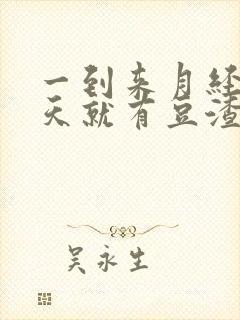 一到来月经
天就有豆渣
吴永生